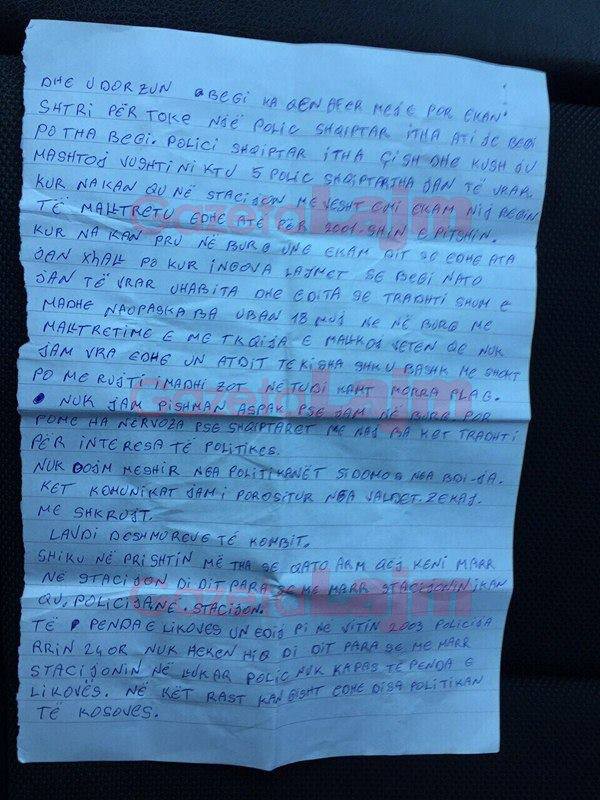 DHE UDORZUN BEGI KA QEN AFER MEJE POR EKAN
SHTRI PËR TOKE NJË POLIC SHQIPTAR ITHA ATI JE BEGI
PO THA BEGI. POLICI SHQIPTAR ITHA ÇISH DHE KUSH JU
MASHTOJ VUSHTINI KTU 5 POLIC SHQIPTAR THA JAN TË VRAR
KUR NAKAN QU NË STACIJON ME VESHT EMI EKAM NIJ BEGIN
TË MALLTRETU EDHE ATË PËR 2001-SHIN E PITSHIN.
KUR NA KAN PRU NË BURG UNE EKAM DIT SE EDHE ATA
JAN XHALL PO KUR INGOVA LAJMET SE BEGI NATO
JAN TË VRAR UHABITA DHE EDITA SE TRADHTI SHUM E
MADHE NAOPASKA BA UBAN 18 MUJ NE NË BURG ME
MALLTRETIME E ME TKQIJA E MALLKOJ VETEN QE NUK
JAM VRA EDHE UN ATDIT TEKISHA SHKU BASHK ME SHOKT
PO ME RUJTI IMADHI ZOT NËTUDI KAMT MORRA PLAG.
NUK JAM PISHMAN ASPAK PSE JAM NË BURG. POR
POME HA NERVOZA PSE SHQIPTARET ME NAJ BA KET TRADHTI
PËR INTERESA TË POLITIKES.
NUK DOJM MESHIR NGA POLITIKANËT SIDOMOS NGA BDI-JA.
KET KOMUNIKAT JAM I POROSITUR NGA VALDET. ZEKAJ.
ME SHKRUJT.
LAVDI DESHMOREVE TË KOMBIT.
SHIKU NË PRISHTIN MË THA SE QATO ARM QEJ KENI MARR
NË STACIJON DI DIT PARA SE ME MARR STACIJONIN IKAN
QU, POLICIJA NË. STACIJON.
TË PENDA E LIKOVES UN EDIJ PI NE VITIN 2003 POLICIJA
RRIN 24 OR NUK HEKEN HIQ DI DIT PARA SE ME MARR
STACIJONIN NË LUKAR POLIC NUK KAPAS TE PENDA E
LIKOVËS. NË KËT RAST KAN GISHT EDHE DISA POLITIKAN
TË KOSOVËS.
Gazeta Lajm
Gazeta Lajm
Gazeta Lajm